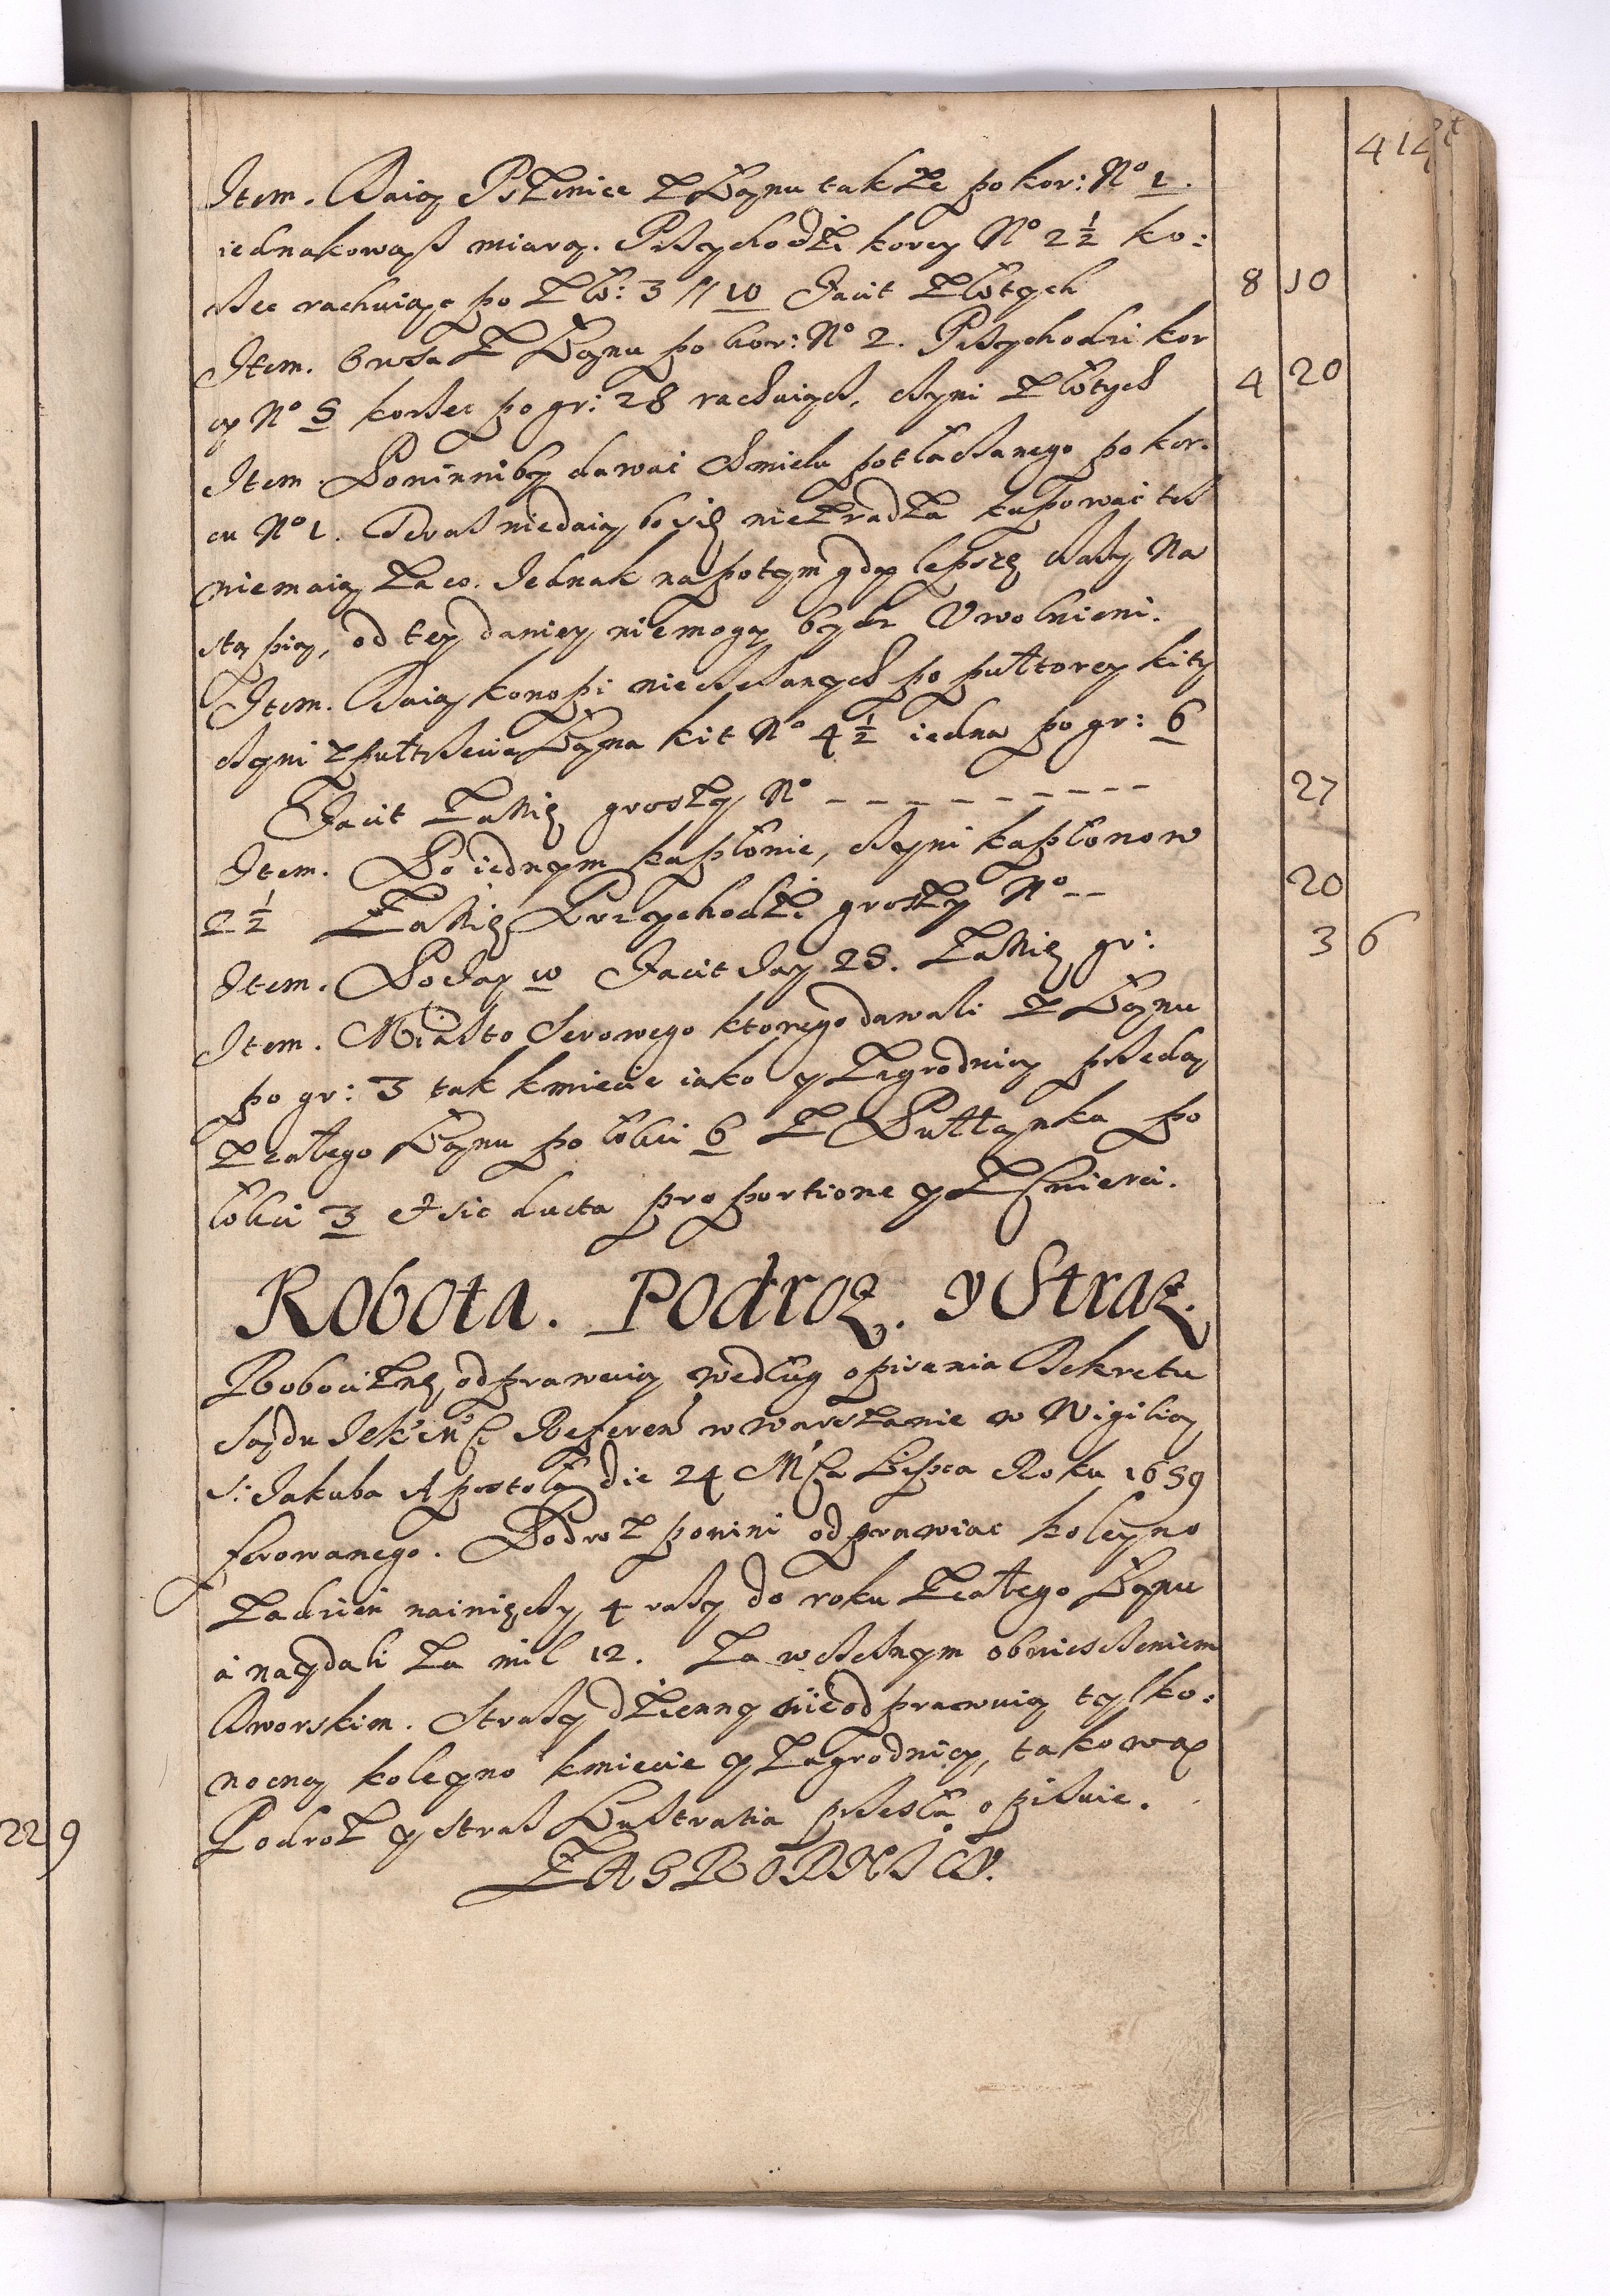 414
Item. Daią Pszenice z Łanu takze po kor: No 1.
iednakowąsz miarą. Przychodzi korcy No 2 1/2 ko:
rzec rachuiąc po Zło: 3 // 10 Facit Złotych 8 10
Item. Owsa z Łanu po kor: No 2. Przychodzi kor
cy No 5 korzec po gr: 28 rachuiąc, czyni Złotych 4 20
Item. Powinniby dawać Chmielu potłaczanego po kor.
cu No 1. Teraz niedaią bo się nie zradza kupować tesz
niemaią za co. Jednak napotym gdy lepsze czasy Na
stąpią, od tey daniey niemogą bydz Vwolnieni.
Item. Daią konopi nieczesanych po pułtorey kity
czyni z pułtrzecia Łana kit No 4 1/2 iedna po gr: 6
Facit za nię groszy No - - - - - - - - - - 27
Item. Po iednym kapłonie, czyni kapłonow
2 1/2 za nię Przychodzi groszy No - - 20
Item. Po Jay 10 Facit Jay 25. za nię gr: 3 6
Item. Miasto Serowego ktorego dawali z Łanu
po gr: 3 tak kmiecie iako y Zagrodnicy przedą
z całego Łanu po łokci 6 z Pułłanka po
łokci 3 et sic ducta proportione y z Cwierci.
Robota. Podroz. y Straz.
Robociznę odprawuią według opisania Dekretu
Sądu Referen w Warszawie w Wigilią
S: Jakuba Apostoła die 24 Mca Lipca Roku 1659
ferowanego. Podroz powini odprawiac koleyno
zadzień nainięczy 4 razy do roku z całego Łanu
a naydali za mil 12. za wczesnym obwiesczeniem
Dworskim. Strazy dzienny nieodprawuią tylko:
nocną koleyno kmiecie y Zagrodnicy, takową
Podroz y straz Lustratia przeszła opisuie.
ZAGRODNICY.
22 9